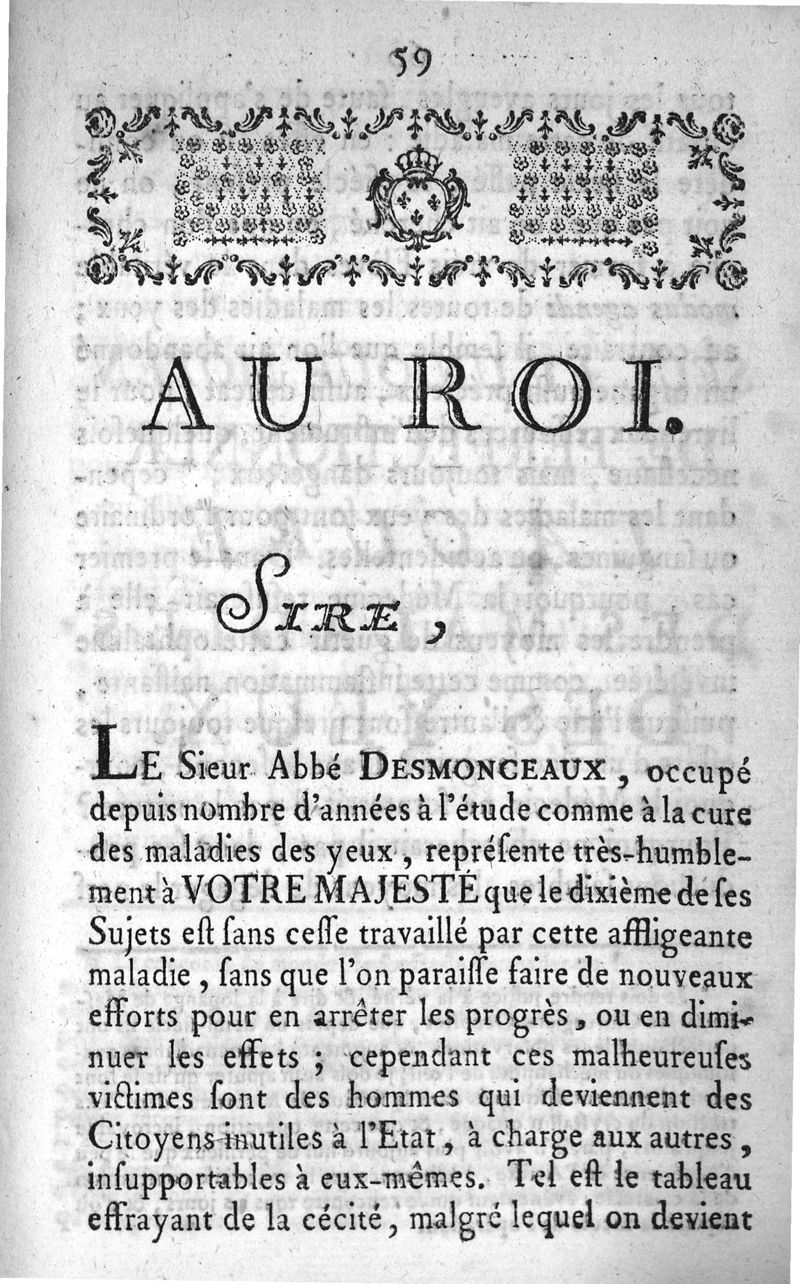 59
AU ROI.
SIRE,
LE Sieur Abbé DESMONCEAUX, occupé
depuis nombre d'années à l'étude comme à la cure
des maladies des yeux, repréſente très-humble-
ment à VOTRE MAJESTÉ que le dixième de ſes
Sujets eſt ſans ceſſe travaillé par cette affligeante
maladie, ſans que l'on paraiſſe faire de nouveaux
efforts pour en arrêter les progrès, ou en dimi-
nuer les effets; cependant ces malheureuſes
victimes ſont des hommes qui deviennent des
Citoyens inutiles à l'Etat, à charge aux autres,
inſupportables à eux-mêmes. Tel eſt le tableau
effrayant de la cécité, malgré lequel on devient